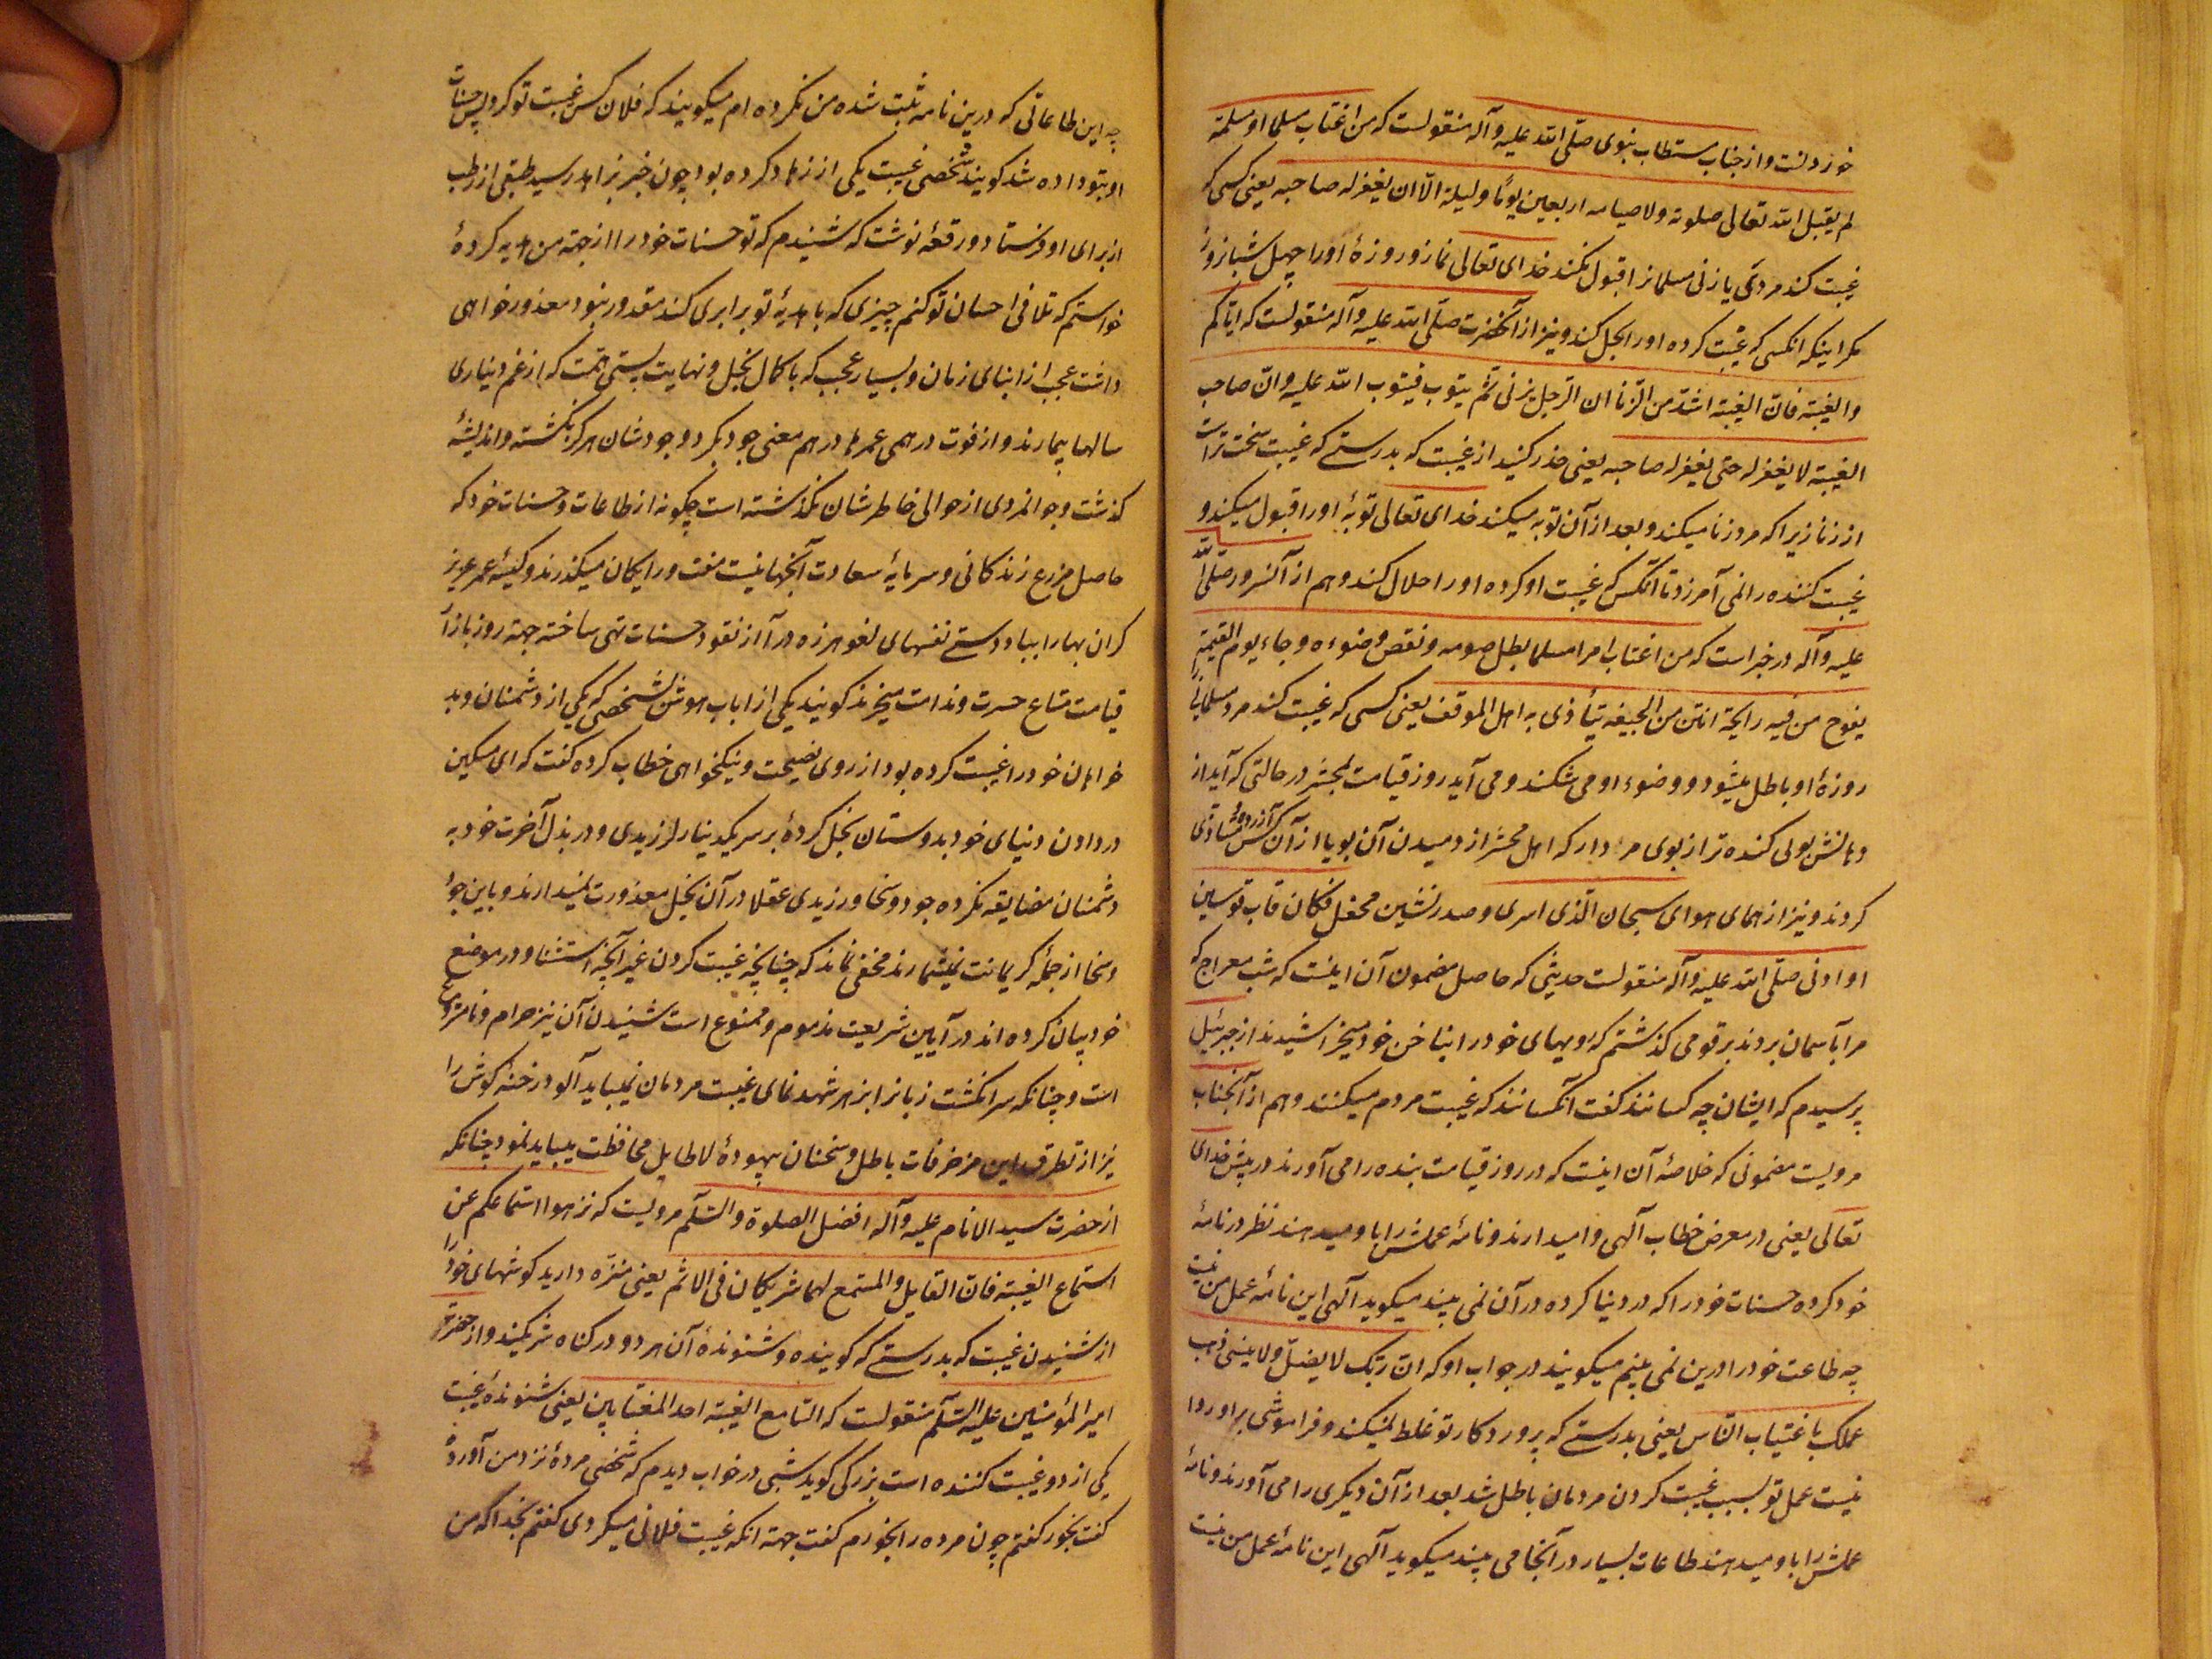 خوردنست و از جناب مستطاب نبوی صلّی الله علیه وآله منقولست که من اغتاب مسلما او مسلمة
لم یقبل الله تعالی صلوته ولا صیامه اربعین یومًا ولیلة الّا ان یغفر له صاحبه یعنی کسی که
غیبت کند مردی یا زنی مسلمانرا قبول نکند خدای تعالی نماز و روزهٔ اورا چهل شبانروز
مکر اینکه انکسی که غیبت کرده اورا بحل کند و نیز از آنحضرت صلّی الله علیه وآله منقولست که ایّاکم
والغیبة فانّ الغیبة اشدّ من الزّنا ان الرّجل یزنی ثمّ یتوب فیتوب الله علیه وانّ صاحب
الغیبة لا یغفر له حتی یغفر له صاحبه یعنی حذر کنید از غیبت که بدرستے که غیبت سخت‌تر است
از زنا زیرا که مرد زنا میکند و بعد از آن توبه میکند خدای تعالی توبهٔ اورا قبول میکند و
غیبت کننده را نمی آمرزد تا آنکس که غیبت او کرده اورا حلال کند و هم از آنسرور صلّی الله
علیه وآله در خبر است که من اغتاب امرا مسلما بطل صومه ونقض وضوءه وجاء یوم القیمة
یفوح من فیه رایحة انتن من الجیفة یتأذی به اهل الموقف یعنی کسی که غیبت کند مرد مسلمانی را
روزهٔ او باطل میشود و وضوء او می شکند و می آید روز قیامت بمحشر در حالتی که آید از
دهانش بوئی کنده تر از بوی مردار که اهل محشر از دمیدن آن بو یا از آن کس آزرده و متأذی
کردند و نیز از همای هوای سبحان الّذی اسری و صدرنشین محفل فکان قاب قوسین
او ادنی صلّی الله علیه وآله منقولست حدیثی که حاصل مضمون آن اینست که شب معراج که
مرا بآسمان بردند بر قومی کذشتم که رویهای خودرا بناخن خود میخراشیدند از جبرئیل
پرسیدم که ایشان چه کسانند کفت آنکسانند که غیبت مردم میکنند و هم از آنجناب
مرویست مضمونی که خلاصهٔ آن اینست که در روز قیامت بنده را می آورند در پیش خدای
تعالی یعنی در معرض خطاب آلهی وامیدارند و نامهٔ عملش را باو میدهند نظر در نامهٔ
خود کرده حسنات خودرا که در دنیا کرده در آن نمی بیند میکوید آلهی این نامهٔ عمل من نیست
چه طاعت خودرا درین نمی بینم میکویند در جواب او که انّ ربّک لا یضلّ ولا ینسی ذهب
عملک باغتیاب النّاس یعنی بدرستے که پروردکار تو غلط نمیکند و فراموشی بر او روا
نیست عمل تو بسبب غیبت کردن مردمان باطل شد بعد از آن دیکری را می آورند و نامهٔ
عملش را باو میدهند طاعات بسیار در آنجا می بیند میکوید آلهی این نامهٔ عمل من نیست
چه این طاعاتی که درین نامه ثبت شده من نکرده ام میکویند که فلان کس غیبت تو کرد پس حسنات
او بتو داده شد کویند شخصی غیبت یکی از زهاد کرده بود چون خبر بزاهد رسید طبقی از رطب
از برای او فرستاد و رقعهٔ نوشت که شنیدم که تو حسنات خودرا از جهة من هدیه کردهٔ
خواستم که تلافی احسان تو کنم چیزی که با هدیهٔ تو برابری کند مقدور نبود معذور خواهی
داشت عجب از ابنای زمان و بسیار عجب که با کمال بخل و نهایت پستی همّت که از غم دیناری
سالها بیمارند و از فوت درهمی عمرها درهم معنی جود بکرد وجودشان هرکز نکشته و اندیشهٔ
کذشت و جوانمردی از حوالی خاطرشان نکذشته است چکونه از طاعات و حسنات خود که
حاصل مزرع زندکانی و سرمایهٔ سعادت آنجهانیست مفت و رایکان میکذرند و کیسهٔ عمر عزیز
کران بها را بباددستے نفسهای لغو هرزه درآ از نقود حسنات تهی ساخته جهة روز بازار
قیامت متاع حسرت و ندامت میخرند کویند یکی از ارباب هوش شخصی که یکی از دشمنان و بد
خواهان خودرا غیبت کرده بود از روی نصیحت و نیکخواهی خطاب کرده کفت که ای مسکین
در دادن دنیای خود بدوستان بخل کردهٔ بر سر یکدینار لرزیدی و در بذل آخرت خود به
دشمنان مضایقه نکرده جود و سخا ورزیدی عقلا در آن بخل معذورت نمیدارند و باین جود
و سخا از جملهٔ کریمانت نمیشمارند مخفی نماند که چنانچه غیبت کردن غیر آنچه استثنا و در موضع
خود بیان کرده اند در آیین شریعت مذموم و ممنوع است شنیدن آن نیز حرام و نامشروع
است و چنانکه سرانکشت زبانرا بزهر شهدنمای غیبت مردمان نمیباید آلود رخنهٔ کوش را
نیز از تطرق این مزخرفات باطل و سخنان بیهودهٔ لاطایل محافظت میباید نمود چنانکه
از حضرت سید الانام علیه وآله افضل الصلوة والسّلام مرویست که نزهوا اسماعکم عن
استماع الغیبة فانّ القایل والمستمع لهما شریکان فی الاثم یعنی منزّه دارید کوشهای خودرا
از شنیدن غیبت که بدرستے که کوینده و شنوندهٔ آن هر دو در کناه شریکند و از حضرت
امیر المؤمنین علیه السّلام منقولست که السّامع الغیبة احد المغتابین یعنی شنوندهٔ غیبت
یکی از دو غیبت کننده است بزرکی کوید شبی در خواب دیدم که شخصی مردهٔ نزد من آورد و
کفت بخور کفتم چون مرده را بخورم کفت جهة انکه غیبت فلانی میکردی کفتم بخدا که من